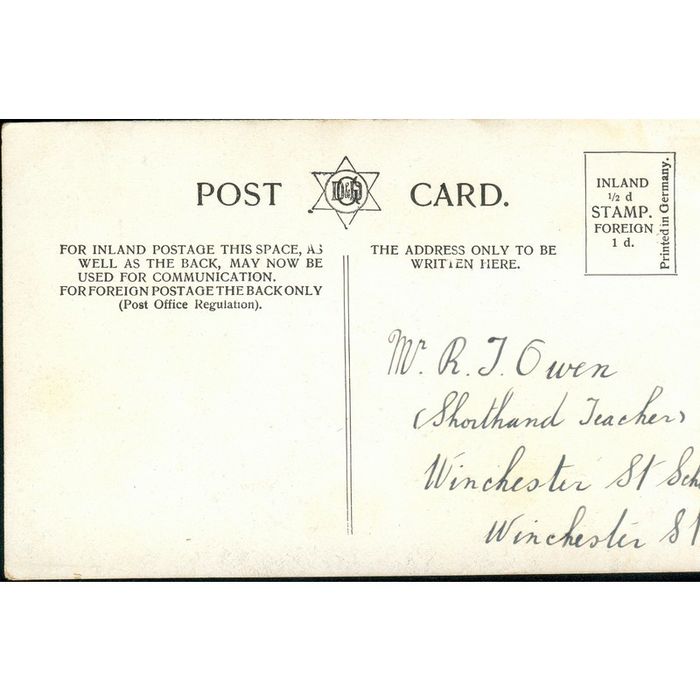 POST CARD.
FOR INLAND POSTAGE THIS SPACE, AS
WELL AS THE BACK, MAY NOW BE
USED FOR COMMUNICATION.
FOR FOREIGN POSTAGE THE BACK ONLY
(Post Office Regulation).
THE ADDRESS ONLY TO BE
WRITTEN HERE.
INLAND
½ d
STAMP.
FOREIGN
1 d.
Printed in Germany.
Mr. R. J. Owen
(Shorthand Teacher)
Winchester St Sch
Winchester St